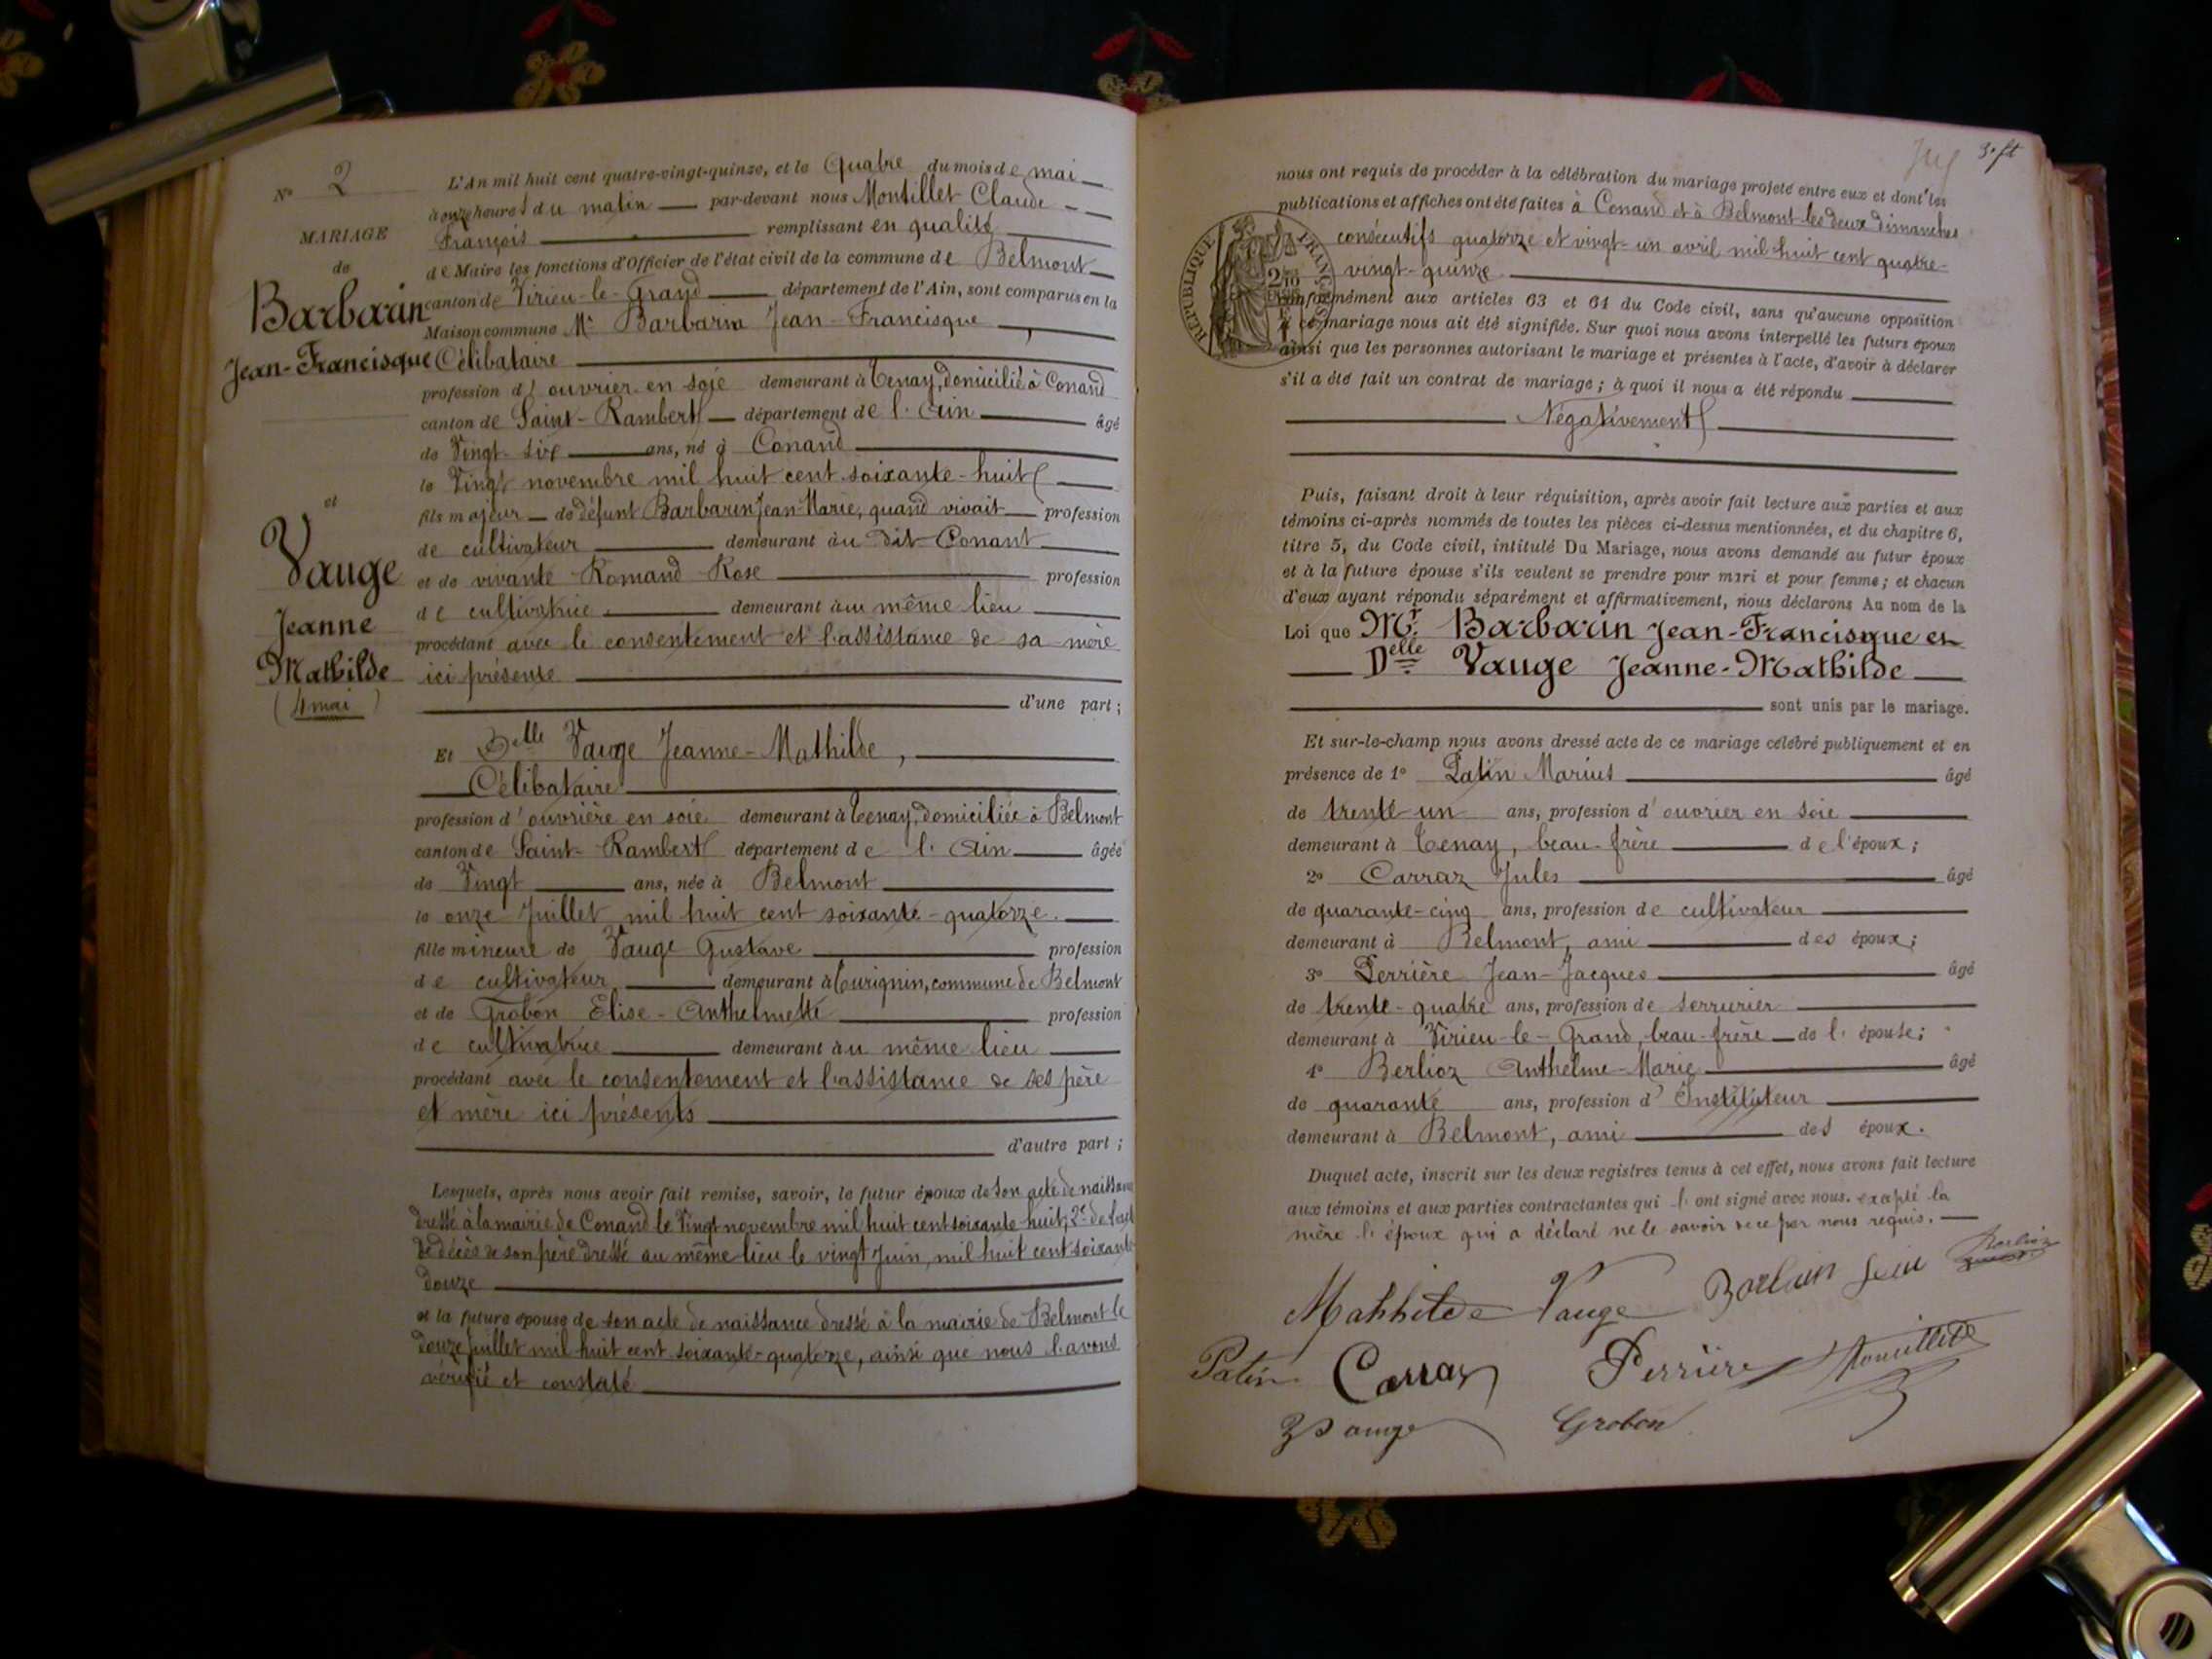 N° 2
MARIAGE
de
Barbarin
Jean-Francisque
et
Vauge
Jeanne
Mathilde
(4 mai)
L'An mil huit cent quatre-vingt-quinze, et le Quatre du mois de mai
à onze heures du matin par-devant nous Montillet Claude
François remplissant en qualité
de Maire les fonctions d'Officier de l'état civil de la commune de Belmont
canton de Virieu-le-Grand département de l'Ain, sont comparus en la
Maison commune Mr Barbarin Jean-Francisque,
Célibataire
profession d' ouvrier en soie demeurant à Tenay, domicilié à Conand
canton de Saint-Rambert département de l'Ain âgé
de Vingt-six ans, né à Conand
le Vingt novembre mil huit cent soixante-huit
fils majeur de défunt Barbarin Jean-Marie, quand vivait profession
de cultivateur demeurant au dit Conant
et de vivante Romand Rose profession
de cultivatrice demeurant au même lieu
procédant avec le consentement et l'assistance de sa mère
ici présente
d'une part ;
Et Delle Vauge Jeanne-Mathilde,
Célibataire
profession d'ouvrière en soie demeurant à Tenay, domiciliée à Belmont
canton de Saint-Rambert département de l'Ain âgée
de Vingt ans, née à Belmont
le onze Juillet mil huit cent soixante-quatorze.
fille mineure de Vauge Gustave profession
de cultivateur demeurant à Curignin, commune de Belmont
et de Grobon Elise-Anthelmette profession
de cultivatrice demeurant au même lieu
procédant avec le consentement et l'assistance de ses père
et mère ici présents
d'autre part ;
Lesquels, après nous avoir fait remise, savoir, le futur époux de son acte de naissance
dressé à la mairie de Conand le Vingt novembre mil huit cent soixante-huit, 2° de l'acte
de décès de son père dressé au même lieu le vingt Juin, mil huit cent soixante
douze
et la future épouse de son acte de naissance dressé à la mairie de Belmont le
douze Juillet mil huit cent soixante-quatorze, ainsi que nous l'avons
vérifié et constaté
nous ont requis de procéder à la célébration du mariage projeté entre eux et dont les
publications et affiches ont été faites à Conand et à Belmont les deux dimanches
consécutifs quatorze et vingt-un avril mil huit cent quatre-
vingt-quinze
RÉPUBLIQUE FRANÇAISE
conformément aux articles 63 et 64 du Code civil, sans qu'aucune opposition
à ce mariage nous ait été signifiée. Sur quoi nous avons interpellé les futurs époux
ainsi que les personnes autorisant le mariage et présentes à l'acte, d'avoir à déclarer
s'il a été fait un contrat de mariage ; à quoi il nous a été répondu
Négativement
Puis, faisant droit à leur réquisition, après avoir fait lecture aux parties et aux
témoins ci-après nommés de toutes les pièces ci-dessus mentionnées, et du chapitre 6,
titre 5, du Code civil, intitulé Du Mariage, nous avons demandé au futur époux
et à la future épouse s'ils veulent se prendre pour mari et pour femme ; et chacun
d'eux ayant répondu séparément et affirmativement, nous déclarons Au nom de la
Loi que Mr. Barbarin Jean-Francisque et
Delle Vauge Jeanne-Mathilde
sont unis par le mariage.
Et sur-le-champ nous avons dressé acte de ce mariage célébré publiquement et en
présence de 1° Patin Marius âgé
de trente-un ans, profession d' ouvrier en soie
demeurant à Tenay, beau-frère de l'époux ;
2° Carraz Jules âgé
de quarante-cinq ans, profession de cultivateur
demeurant à Belmont, ami des époux ;
3° Perrière Jean-Jacques âgé
de trente-quatre ans, profession de serrurier
demeurant à Virieu-le-Grand, beau-frère de l'épouse ;
4° Berlioz Anthelme-Marie âgé
de quarante ans, profession d' Instituteur
demeurant à Belmont, ami des époux.
Duquel acte, inscrit sur les deux registres tenus à cet effet, nous avons fait lecture
aux témoins et aux parties contractantes qui l'ont signé avec nous. excepté la
mère de l'époux qui a déclaré ne le savoir de ce par nous requis.
Mathilde Vauge
Berlioz
Patin Carraz Perrière Montillet
Vauge Grobon